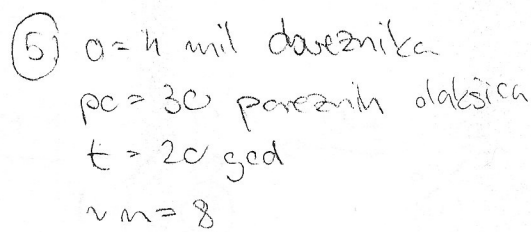 5) O = 4 mil doveznika
pc = 30 poreznih olakšica
t = 20 god
v m = 8